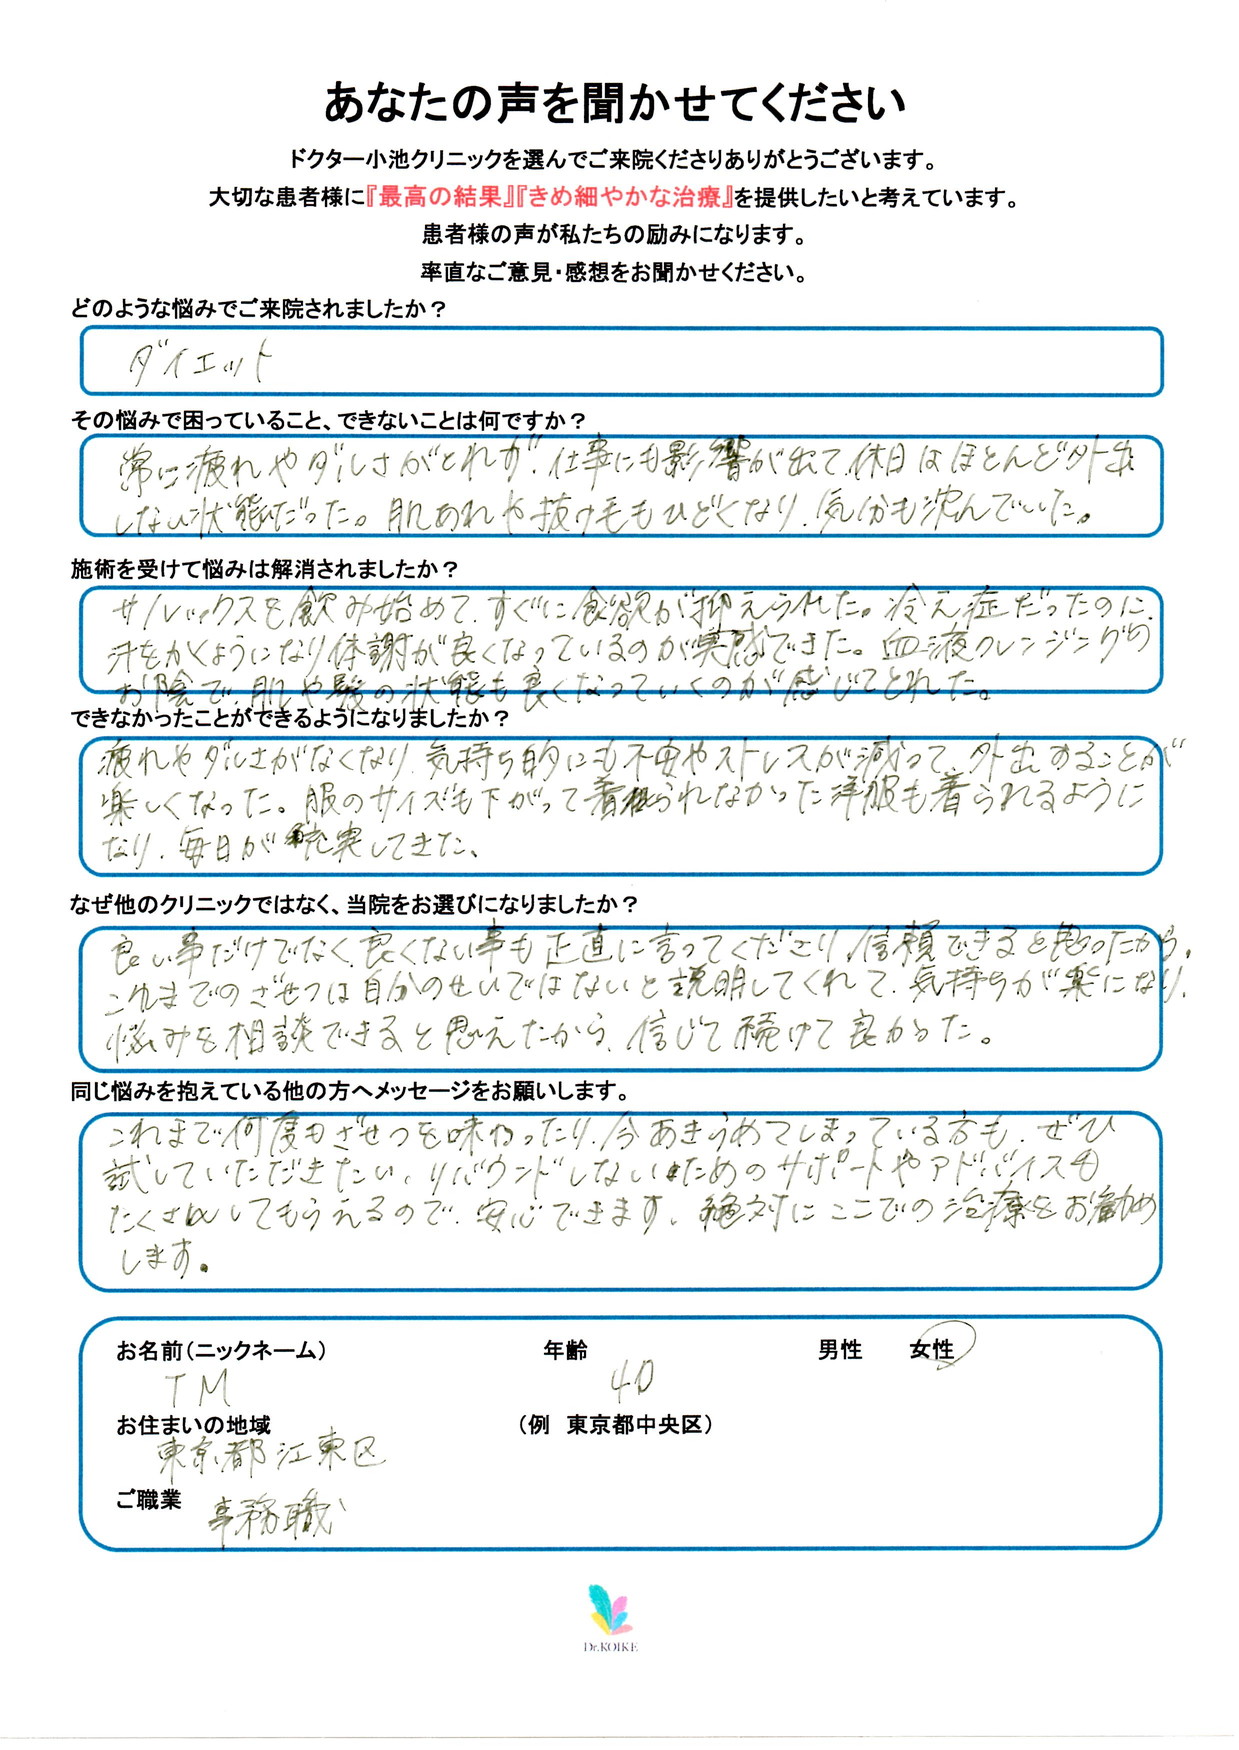 あなたの声を聞かせてください
ドクター小池クリニックを選んでご来院くださりありがとうございます。
大切な患者様に『最高の結果』『きめ細やかな治療』を提供したいと考えています。
患者様の声が私たちの励みになります。
率直なご意見・感想をお聞かせください。
どのような悩みでご来院されましたか？
ダイエット
その悩みで困っていること、できないことは何ですか？
常に疲れやダルさがとれず、仕事にも影響が出て、休日はほとんど外出
しない状態だった。肌あれや抜け毛もひどくなり、気分も沈んでいた。
施術を受けて悩みは解消されましたか？
サノレックスを飲み始めて、すぐに食欲が抑えられた。冷え症だったのに、
汗をかくようになり体謝が良くなっているのが実感できた。血液クレンジングの
お陰で、肌や髪の状態も良くなっていくのが感じてとれた。
できなかったことができるようになりましたか？
疲れやダルさがなくなり、気持ち的にも不安やストレスが減って、外出することが
楽しくなった。服のサイズも下がって着られなかった洋服も着られるように
なり、毎日が充実してきた、
なぜ他のクリニックではなく、当院をお選びになりましたか？
良い事だけでなく、良くない事も正直に言ってくださり、信頼できると思ったから。
これまでのざせつは自分のせいではないと説明してくれて、気持ちが楽になり、
悩みを相談できると思えたから、信じて続けて良かった。
同じ悩みを抱えている他の方へメッセージをお願いします。
これまで何度もざせつを味わったり、今あきらめてしまっている方も、ぜひ
試していただきたい。リバウンドしないためのサポートやアドバイスも
たくさんしてもらえるので、安心できます。絶対にここでの治療をお勧め
します。
お名前（ニックネーム） 年齢 男性 女性
TM 40
お住まいの地域 （例 東京都中央区）
東京都江東区
ご職業 事務職
Dr.KOIKE